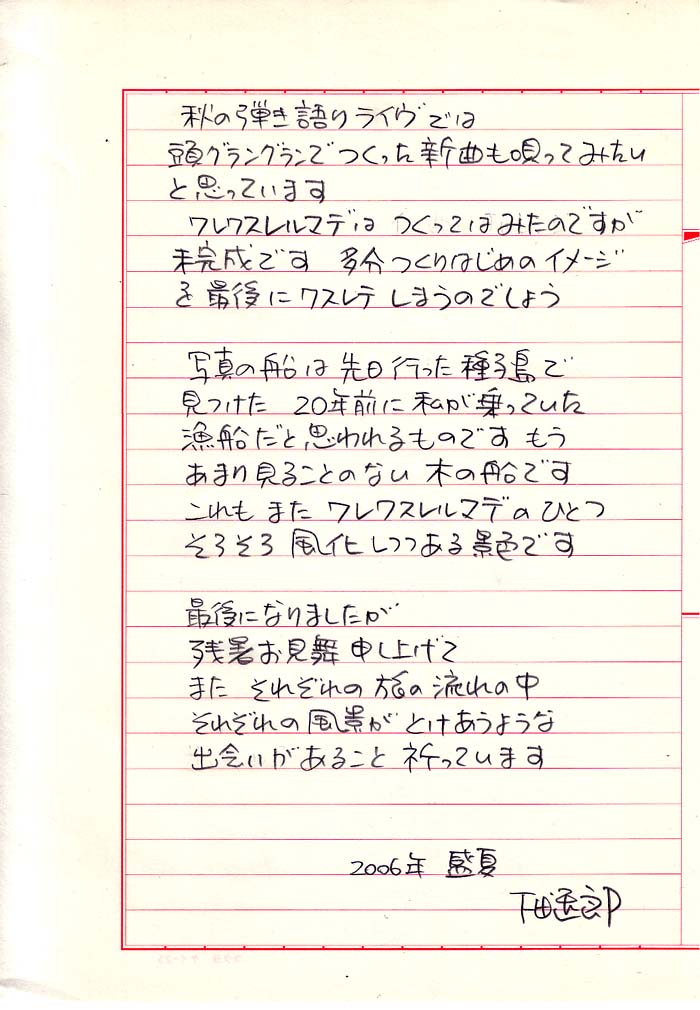 秋の弾き語りライヴでは
頭グラングランでつくった新曲も唄ってみたい
と思っています
ワレワスレルマデは つくってはみたのですが
未完成です 多分つくりはじめのイメージ
を最後にワスレテしまうのでしょう
写真の船は先日行った種子島で
見つけた 20年前に私が乗っていた
漁船だと思われるものです もう
あまり見ることのない 木の船です
これも また ワレワスレルマデの ひとつ
そろそろ 風化しつつある景色です
最後になりましたが
残暑お見舞申し上げて
また それぞれの旅の流れの中
それぞれの風景が とけあうような
出会いがあること 祈っています
2006年 盛夏
下田逸郎